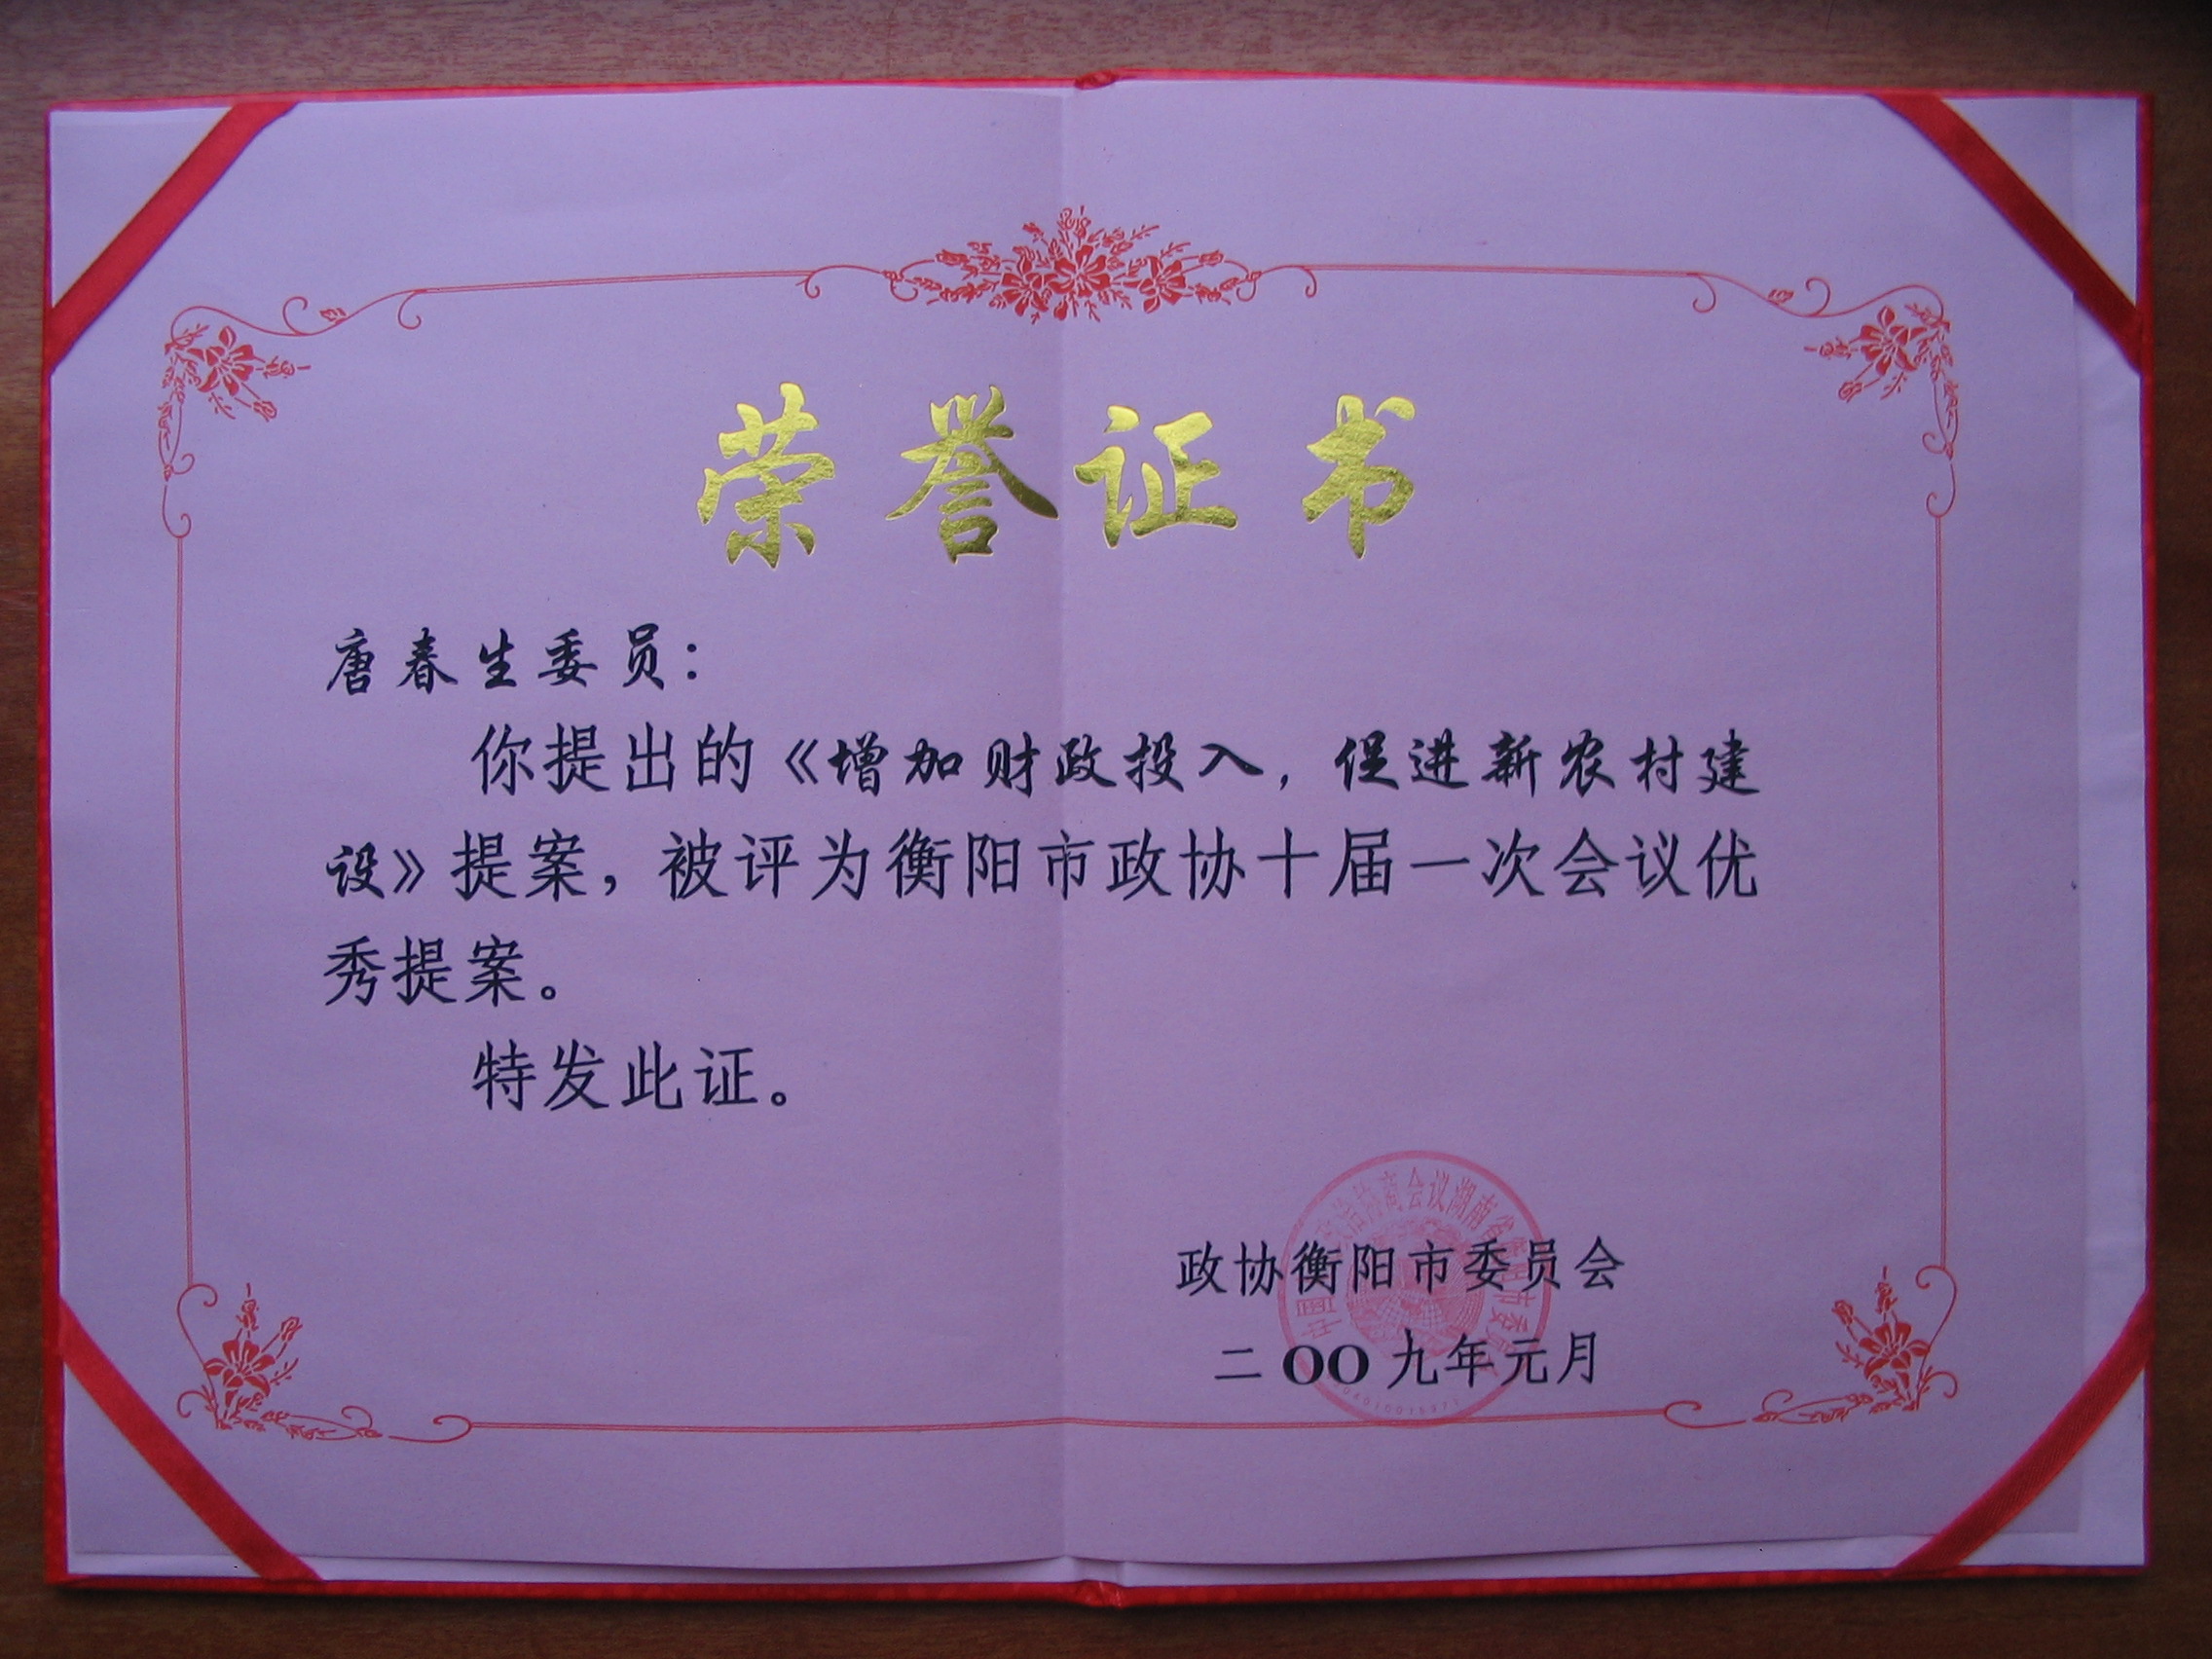 荣誉证书
唐春生委员：
你提出的《增加财政投入，促进新农村建
设》提案，被评为衡阳市政协十届一次会议优
秀提案。
特发此证。
政协衡阳市委员会
二〇〇九年元月